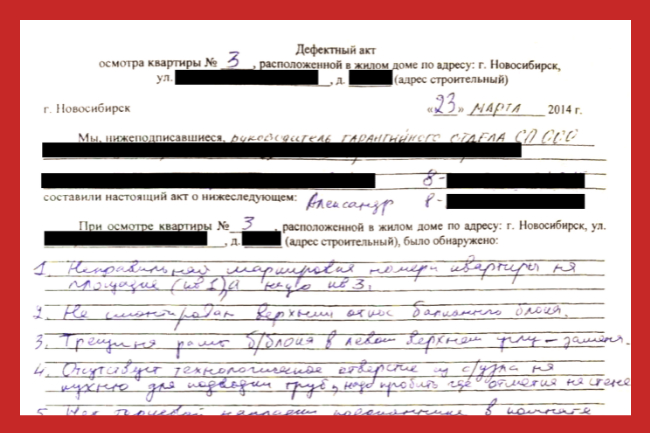 Дефектный акт
осмотра квартиры № 3, расположенной в жилом доме по адресу: г. Новосибирск,
ул. , д. (адрес строительный)
г. Новосибирск «23» марта 2014 г.
Мы, нижеподписавшиеся, руководитель гарантийного отдела СП ООО
8-
составили настоящий акт о нижеследующем: Александр 8-
При осмотре квартиры № 3, расположенной в жилом доме по адресу: г. Новосибирск, ул.
, д. (адрес строительный), было обнаружено:
1. Неправильная маркировка номера квартиры на
площадке (кв 1), а надо кв 3.
2. Не смонтирован верхний откос балконного блока.
3. Трещина рамы б/блока в левом верхнем углу – замена.
4. Отсутствует технологическое отверстие из с/узла на
кухню для подводки труб, надо пробить где отметка на стене
5. Нет торцевой накладки подоконника в комнате